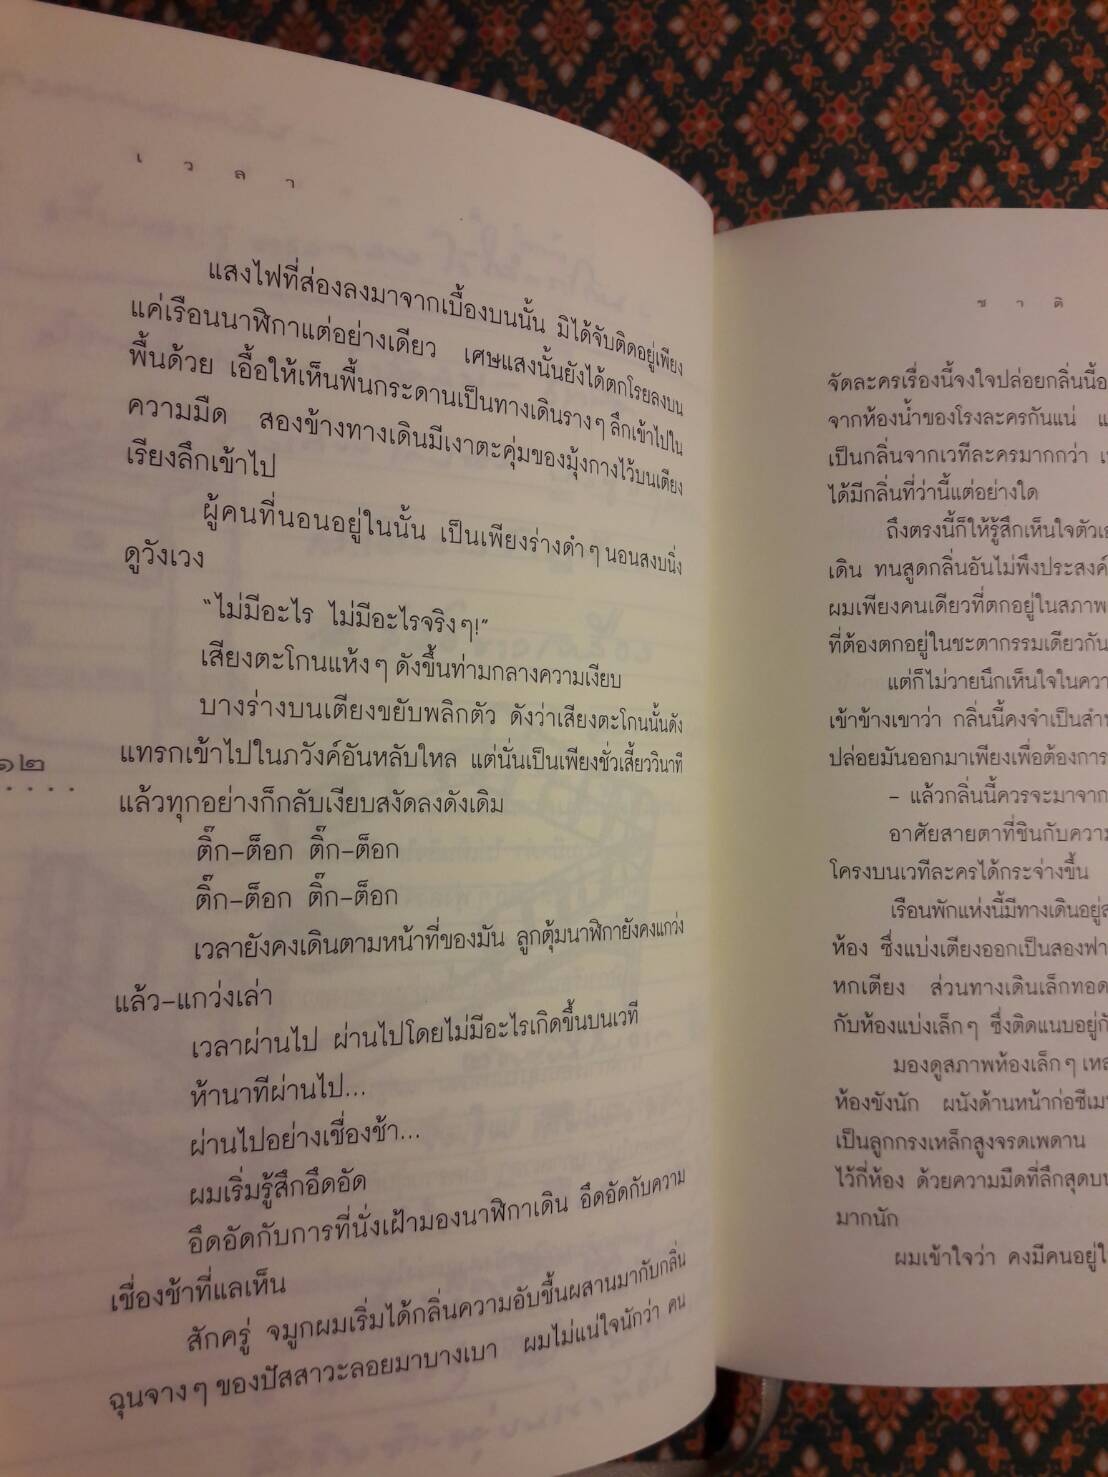 เวลา
แสงไฟที่ส่องลงมาจากเบื้องบนนั้น มิได้จับติดอยู่เพียง
แค่เรือนนาฬิกาแต่อย่างเดียว เศษแสงนั้นยังได้ตกโรยลงบน
พื้นด้วย เอื้อให้เห็นพื้นกระดานเป็นทางเดินรางๆ ลึกเข้าไปใน
ความมืด สองข้างทางเดินมีเงาตะคุ่มของมุ้งกางไว้บนเตียง
เรียงลึกเข้าไป
ผู้คนที่นอนอยู่ในนั้น เป็นเพียงร่างดำๆ นอนสงบนิ่ง
ดูวังเวง
"ไม่มีอะไร ไม่มีอะไรจริงๆ!"
เสียงตะโกนแห้งๆ ดังขึ้นท่ามกลางความเงียบ
บางร่างบนเตียงขยับพลิกตัว ดังว่าเสียงตะโกนนั้นดัง
แทรกเข้าไปในภวังค์อันหลับใหล แต่นั่นเป็นเพียงชั่วเสี้ยววินาที
แล้วทุกอย่างก็กลับเงียบสงัดลงดังเดิม
ติ๊ก-ต็อก ติ๊ก-ต็อก
ติ๊ก-ต็อก ติ๊ก-ต็อก
เวลายังคงเดินตามหน้าที่ของมัน ลูกตุ้มนาฬิกายังคงแกว่ง
แล้ว-แกว่งเล่า
เวลาผ่านไป ผ่านไปโดยไม่มีอะไรเกิดขึ้นบนเวที
ห้านาทีผ่านไป...
ผ่านไปอย่างเชื่องช้า...
ผมเริ่มรู้สึกอึดอัด
อึดอัดกับการที่นั่งเฝ้ามองนาฬิกาเดิน อึดอัดกับความ
เชื่องช้าที่แลเห็น
สักครู่ จมูกผมเริ่มได้กลิ่นความอับชื้นผสานมากับกลิ่น
ฉุนจางๆ ของปัสสาวะลอยมาบางเบา ผมไม่แน่ใจนักว่า คน
๑๒
ชาติ
จัดละครเรื่องนี้จงใจปล่อยกลิ่นนี้
จากห้องน้ำของโรงละครกันแน่
เป็นกลิ่นจากเวทีละครมากกว่า
ได้มีกลิ่นที่ว่านี้แต่อย่างใด
ถึงตรงนี้ก็ให้รู้สึกเห็นใจ
เดิน ทนสูดกลิ่นอันไม่พึงประสงค์
ผมเพียงคนเดียวที่ตกอยู่ในสภาพ
ที่ต้องตกอยู่ในชะตากรรมเดียวกัน
แต่ก็ไม่วายนึกเห็นใจใน
เข้าข้างเขาว่า กลิ่นนี้คงจำเป็น
ปล่อยมันออกมาเพียงเพื่อต้องการ
- แล้วกลิ่นนี้ควรจะมาจาก
อาศัยสายตาที่ชินกับความ
โครงบนเวทีละครได้กระจ่างขึ้น
เรือนพักแห่งนี้มีทางเดินอยู่
ห้อง ซึ่งแบ่งเตียงออกเป็นสอง
หกเตียง ส่วนทางเดินเล็กทอด
กับห้องแบ่งเล็กๆ ซึ่งติดแนบอยู่
มองดูสภาพห้องเล็กๆ
ห้องขังนัก ผนังด้านหน้าก่อ
เป็นลูกกรงเหล็กสูงจรดเพดาน
ไว้กี่ห้อง ด้วยความมืดที่ลึกสุด
มากนัก
ผมเข้าใจว่า คงมีคนอยู่